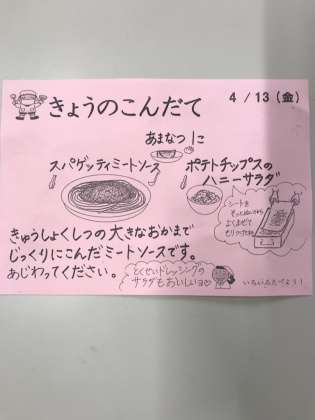 きょうのこんだて
4/13(金)
あまなつ1こ
スパゲッティミートソース
ポテトチップスの
ハニーサラダ
きゅうしょくしつの大きなおかまで
じっくりにこんだミートソースです。
あじわってください。
とくせいドレッシングの
サラダもおいしいヨ
シートを
よくまぜて